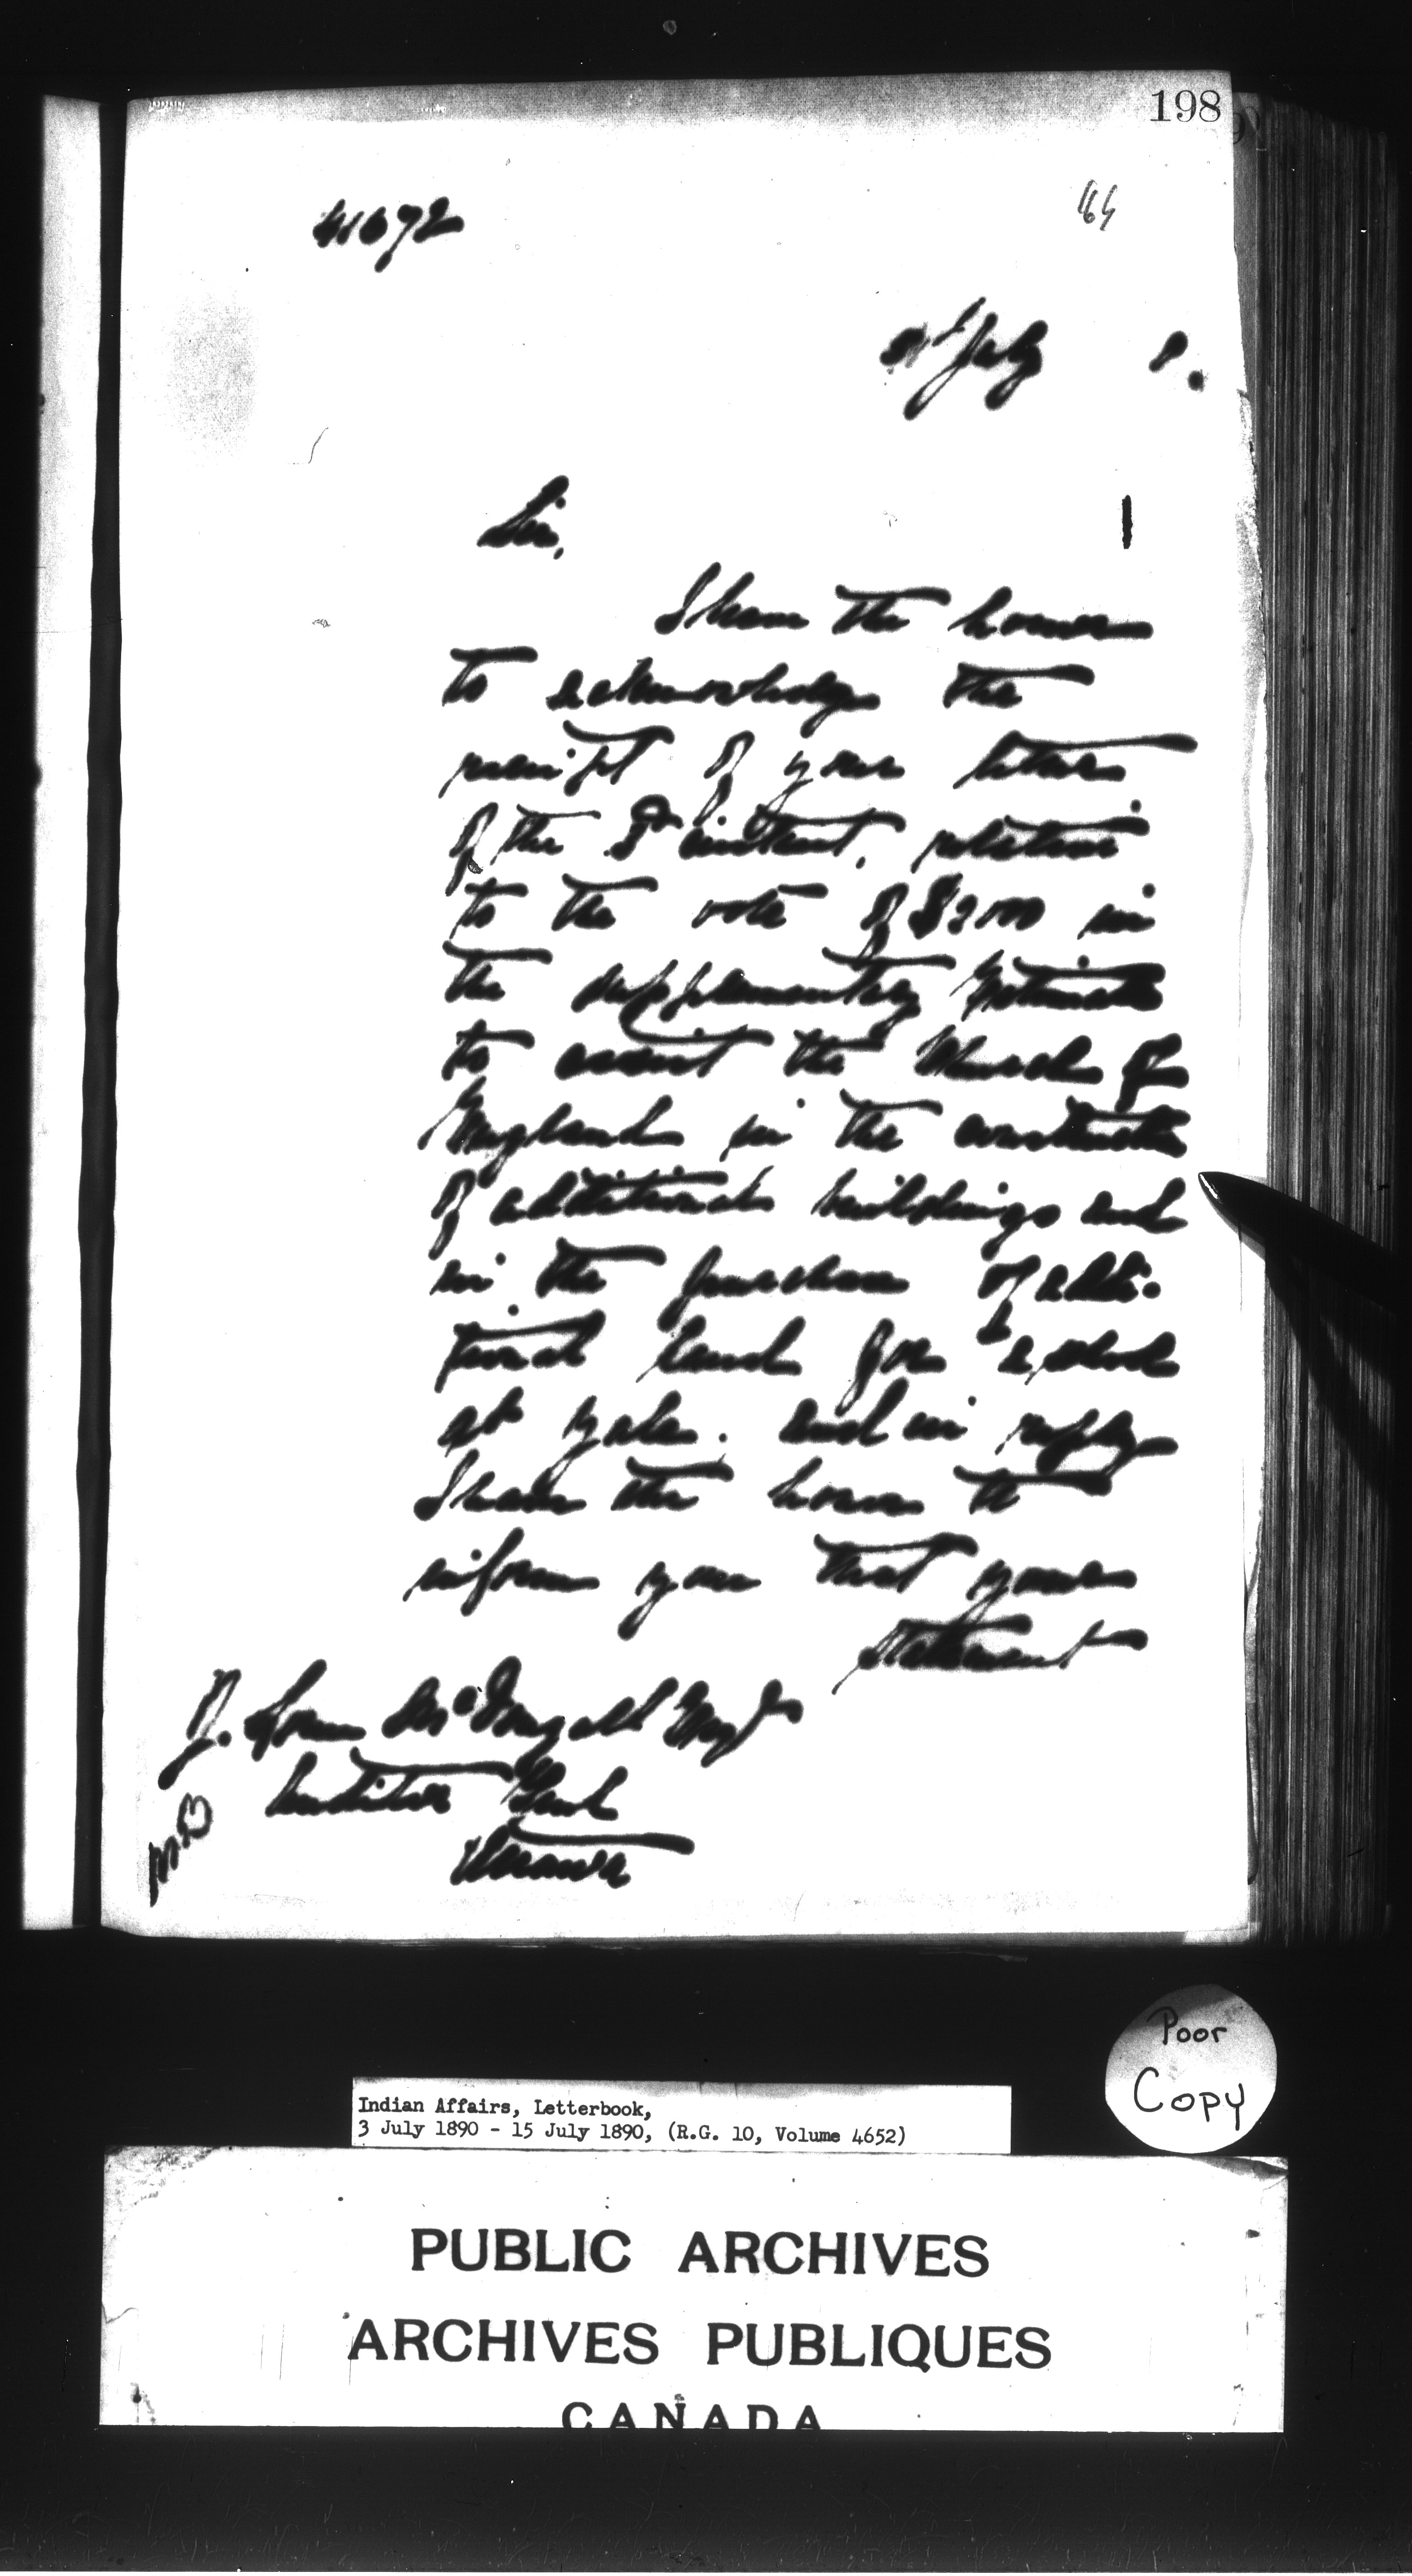 198
41672
July
Sir,
I have the honor
to acknowledge the
receipt of your letter
of the instant, relative
to the vote of $2000 in
the supplementary Estimates
to assist the Church of
England in the construction
of additional buildings and
in the purchase of addi-
tional land for a school
at Yale. and in reply
I have the honor to
inform you that your
statement
J. Lorn McDougall Esqr
Auditor Genl
Ottawa
Poor
Copy
Indian Affairs, Letterbook,
3 July 1890 - 15 July 1890, (R.G. 10, Volume 4652)
PUBLIC ARCHIVES
ARCHIVES PUBLIQUES
CANADA